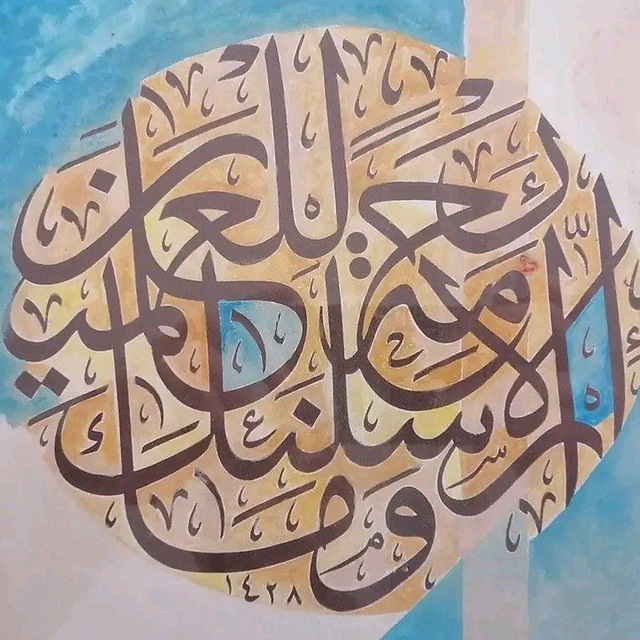 وما أرسلنٰك إلا رحمة للعٰلمين
١٤٢٨